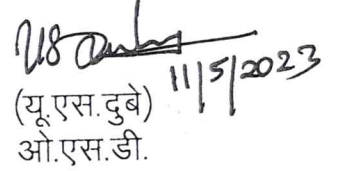 11/5/2023
(यू.एस.दुबे)
ओ.एस.डी.